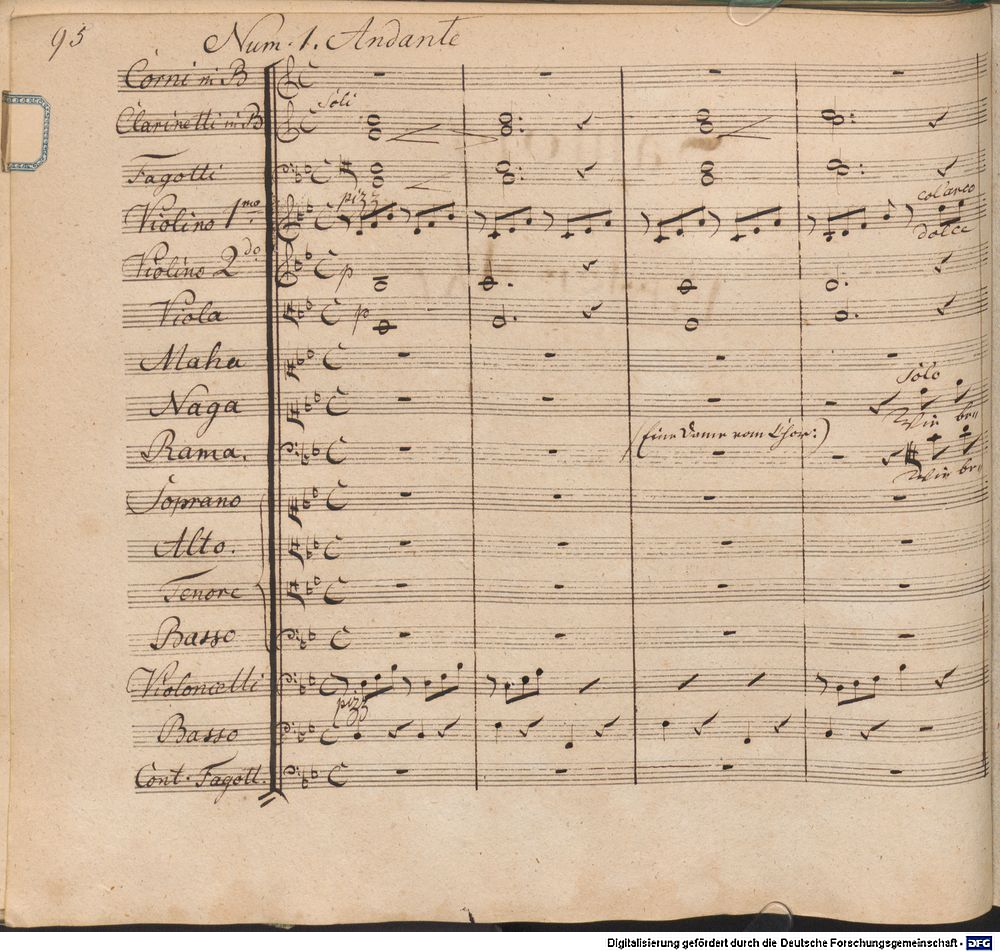 95
Num. 1. Andante
Corni in B
Soli
Clarinetti in B
Fagotti
pizz
Violino 1mo
col arco
dolce
Violino 2do
p
Viola
p
Maha
Solo
Naga
Wie be-
(Eine Dame vom Chor:)
Rama.
Wie be-
Soprano
Alto.
Tenore
Basso
Violoncelli
pizz
Basso
Cont. Fagott.
Digitalisierung gefördert durch die Deutsche Forschungsgemeinschaft - DFG